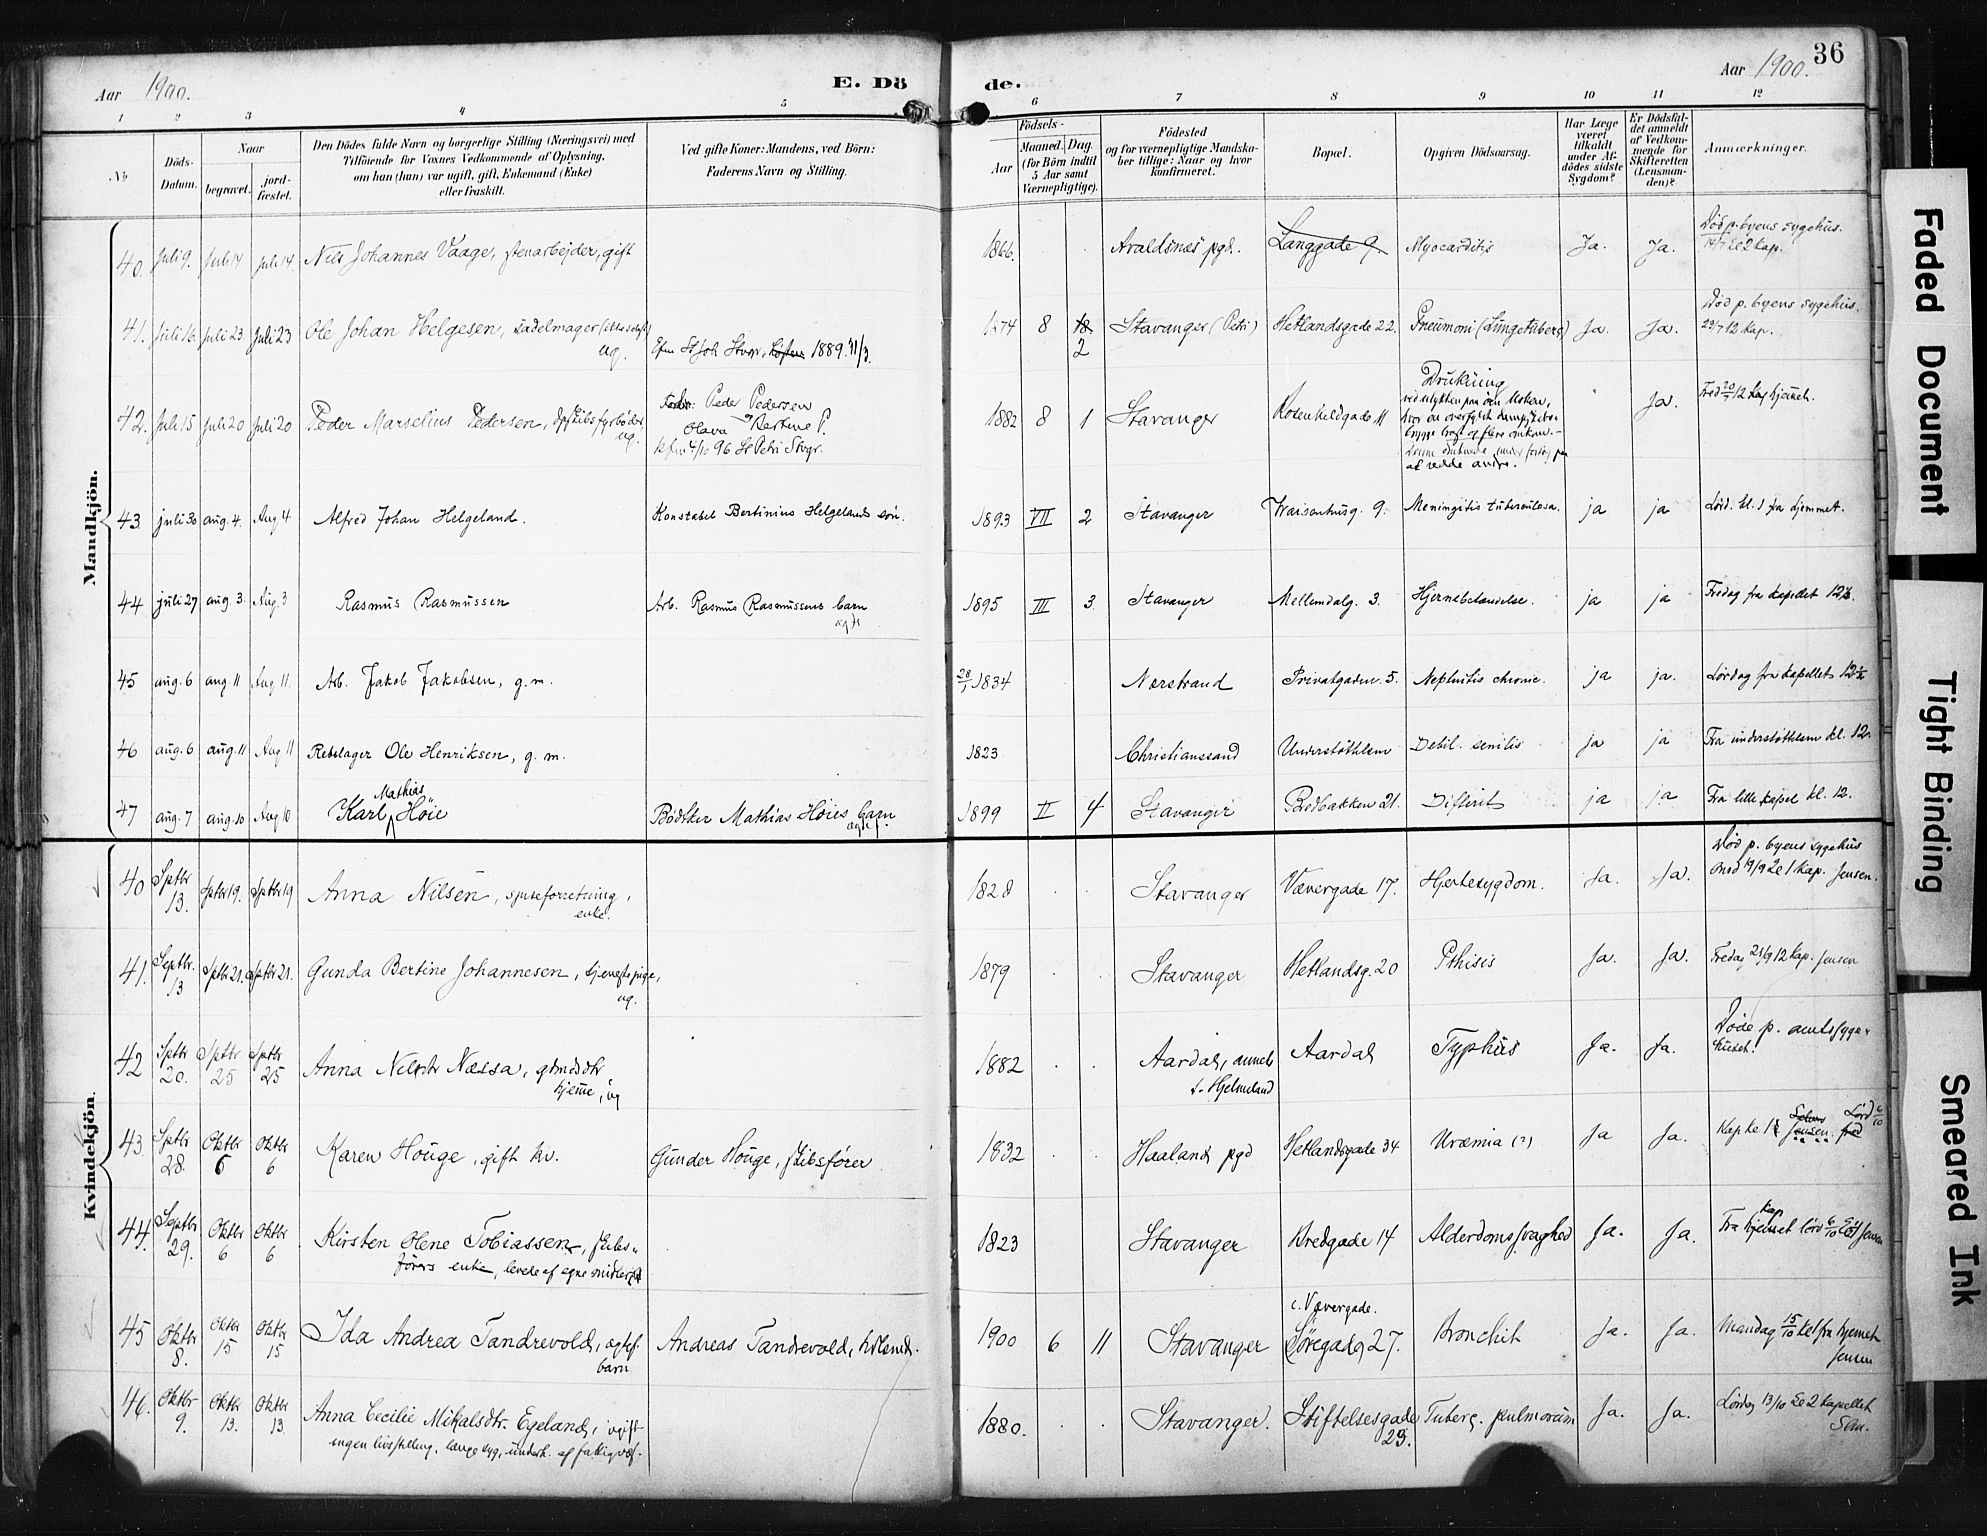 36
Aar 1900. E. Dö de. Aar 1900.
1 2 3 4 5 6 7 8 9 10 11 12
№
Döds-Datum.
Naar
begravet.
jord-fæstet.
Den Dödes fulde Navn og borgerlige Stilling (Næringsvei) med
Tilföiende for Voxnes Vedkommende af Oplysning,
om han (hun) var ugift, gift, Enkemand (Enke)
eller fraskilt.
Ved gifte Koner: Mandens, ved Börn:
Faderens Navn og Stilling.
Födsels-
Aar
Maaned. Dag.
(for Börn indtil
5 Aar samt
Værnepligtige).
Födested
og for værnepligtige Mandska-
ber tillige: Naar og hvor
konfirmeret.
Bopæl.
Opgiven Dödsaarsag.
Har Læge
været
tilkaldt
under Af-
dödes sidste
Sygdom?
Er Dödsfal-
det anmeldt
af Vedkom-
mende for
Skifteretten
(Lensman-
den)?
Anmærkninger.
Mandkjön.
40. Juli 9. Juli 14 Juli 14. Nils Johannes Vaage, stenarbejder, gift 1866. Avaldsnæs pgd. Langgade 9. Myocarditis Ja. Ja. Død p. byens sygehus.
14/7 kl 2 kap.
41. Juli 16. Juli 23 Juli 23 Ole Johan Helgesen, sadelmager
ug. 1889 11/3. 1874 8 18 2 Stavanger (Petri) Hetlandsgade 22. Pneumoni (Lungetuberc) Ja. Ja. Død p. byens sygehus.
23/7 12 kap.
42. Juli 15 Juli 20 Juli 20 Peder Marselius Pedersen,
ug. Peder Pedersen
Olava Bertine P.
Kfm 4/10 96 St Petri Stvgr. 1882 8 1 Stavanger Rosenkildgade 11 Drukning
Ja. Fred 20/7 12 kap hjemmet.
43 juli 30 aug. 4. Aug 4 Alfred Johan Helgeland. Konstabel Bertinius Helgelands søn. 1893 VII 2 Stavanger Vraisenhusg. 9. Meningitis tuberculosa. ja ja Lørd. kl. 1 fra hjemmet.
44 juli 27 aug. 3. Aug. 3 Rasmus Rasmussen Arb. Rasmus Rasmussens barn
ægte 1895 III 3. Stavanger Mellemdalg. 3. Hjernebetændelse. ja ja Fredag fra kapellet 12½.
45 aug. 6 aug 11 Aug 11. Arb. Jakob Jakobsen, g. m. 28/1 1834 Nærstrand Privatgaden 5. Nephritis chronic. ja ja. Lørdag fra kapellet 12½
46 aug. 6 aug. 11 Aug 11 Rebslager Ole Henriksen, g. m. 1823 Christianssand Understøttelsem Debil. senilis ja ja Fra understøttelsem kl. 12.
47 aug. 7 aug. 10 Aug 10 Karl Mathias Høie Bødker Mathias Høies barn
ægte 1899 II 4 Stavanger Bedbakken 21. Difterit ja ja Fra lille kapel kl. 12.
Kvindekjön.
40 Sptbr 13. Sptbr 19. Sptbr 19 Anna Nilsen, syneforretning,
enke. 1828 Stavanger Vævergade 17. Hjertesygdom. Ja. Ja. Død p. byens sygehus
Onsd 19/9 kl 1 kap. Jensen.
41. Septbr. 13 Sptbr 21. Sptbr 21. Gunda Bertine Johannesen, tjenestepige,
ug. 1879 Stavanger Hetlandsg. 20 Pthisis Ja. Ja. Fredag 21/9 12 kap. Jensen
42 Sptbr 20. Sptbr 25 Sptbr 25 Anna Nelsdtr Næssa, gdmdsdtr
hjeme, ug 1882 Aardal, annek
t. Hjelmeland Aardal Typhus Ja. Ja. Døde p. amtssyge-
huset.
43. Sptbr 28. Oktbr 6 Oktbr 6 Karen Houge, gift kv. Gunder Houge, skibsfører. 1832 Haaland pgd Hetlandsgade 34 Uræmia (?) Ja Ja. Jensen. fred Lørd 6/10
44. Septbr 29. Oktbr 6 Oktbr 6 Kirsten Olene Tobiassen, skibs-
førers enke, levede af egne midler 1823 Stavanger Bredgade 14 Alderdomssvaghed Ja. Ja. Fra hjemet kap lørd 6/10 Jensen
45 Oktbr 8. Oktbr 15 Oktbr 15 Ida Andrea Tandrevold, ægtef.
barn Andreas Tandrevold, 1900 6 11 Stavanger c. Vævergade.
Søregade 27. Bronchit Ja. Ja. Mandag 15/10 kl 1 fra hjemet
Jensen
46. Oktbr 9. Oktbr 13. Oktbr 13. Anna Cecilie Mikalsdtr. Egeland, ugift
ingen livsstilling, længe syg, underh. af fattigvæs. 1880. Stavanger. Stiftelsesgade 23. Tuberc. pulmorum Ja. Ja. Lørdag 13/10 kl 2 kapellet
Faded Document
Tight Binding
Smeared Ink